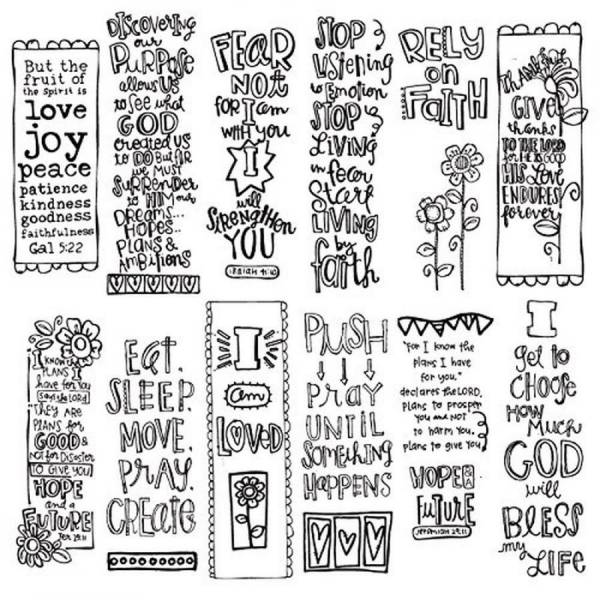 But the
fruit of
the spirit is
love
joy
peace
patience
kindness
goodness
faithfulness
Gal 5:22
DISCOVERING
our
PURPOSE
allows us
to see what
GOD
created us
to DO But
we MUST
SURRENDER
to HIM our
DREAMS...
HOPES...
PLANS &
AMBITIONS
FEAR
NOT
FOR I am
WITH you
I
will
STRENGTHEN
YOU
isaiah 41:10
STOP
Listening
to Emotion
STOP
LIVING
in fear
Start
LIVING
by
faith
RELY
on
FAITH
Thankful
GIVE
thanks
TO THE LORD
for HE IS GOOD
HIS LOVE
ENDURES
forever
I KNOW the
PLANS I
have for you
says the LORD
"THEY ARE
PLANS for
GOOD &
NOT for DISASTER
TO GIVE YOU
HOPE
and a
FUTURE
Jer 29:11
EAT.
SLEEP.
MOVE.
PRAY.
CREATE.
I
am
LOVED
PUSH
pray
UNTIL
Something
HAPPENS
"For I know the
plans I have
for you,"
declares the LORD,
plans to prosper
you and NOT
to harm you.
plans to give you
HOPE & a
FUTURE
JEREMIAH 29:11
I
get to
CHOOSE
HOW Much
GOD
will
BLESS
my
LIFE